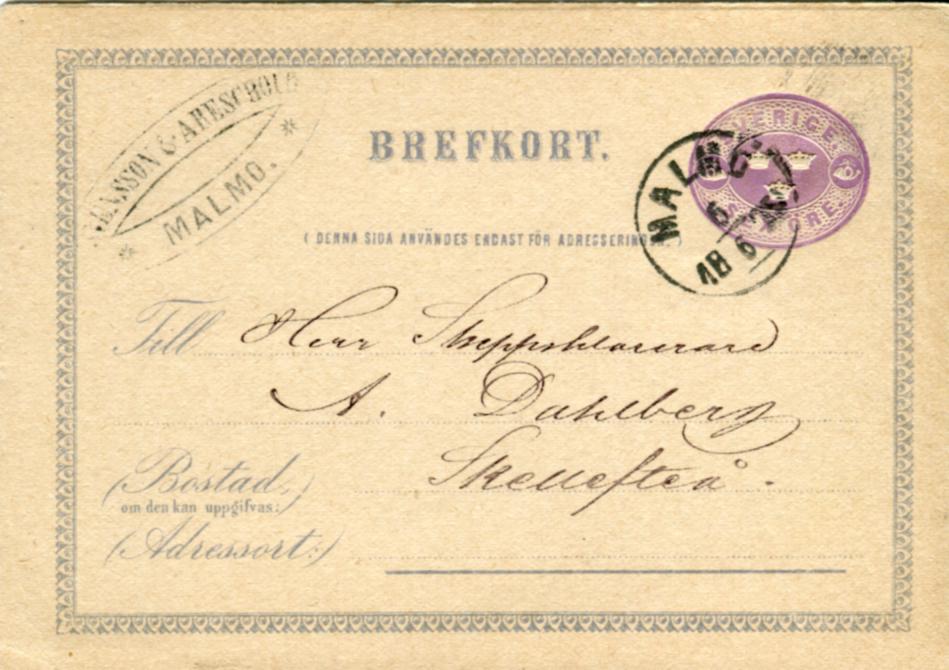 HANSSON & ARESCHOUG
* MALMÖ. *
BREFKORT.
SVERIGE.
SEX ÖRE.
6
MALMÖ
6
18 6
(DENNA SIDA ANVÄNDES ENDAST FÖR ADRESSERINGEN.)
Till Herr Skeppsklarerare
A. Dahlberg
Skellefteå.
(Bostad,
om den kan uppgifvas:)
(Adressort:)